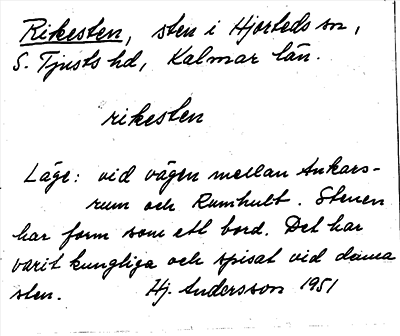 Rikesten, sten i Hjorteds sn,
S. Tjusts hd, Kalmar län.
rikesten
Läge: vid vägen mellan Ankars-
rum och Rumhult. Stenen
har form som ett bord. Det har
varit kungliga och spisat vid denna
sten. Hj. Andersson 1951